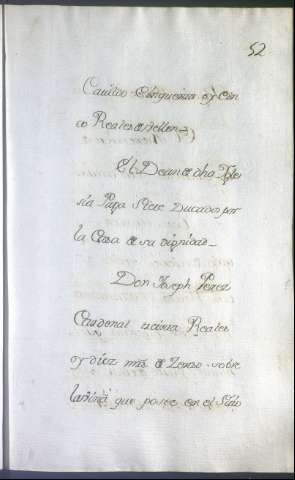 52
Cinquenta y Cin
co Reales de Vellon =
El Dean de dha Igle
sia Paga Siete Ducados por
la Casa de su dignidad =
Don Joseph Perez
Cardenal Reales
y diez mrs de Zenso sobre
la que posee en el Sitio